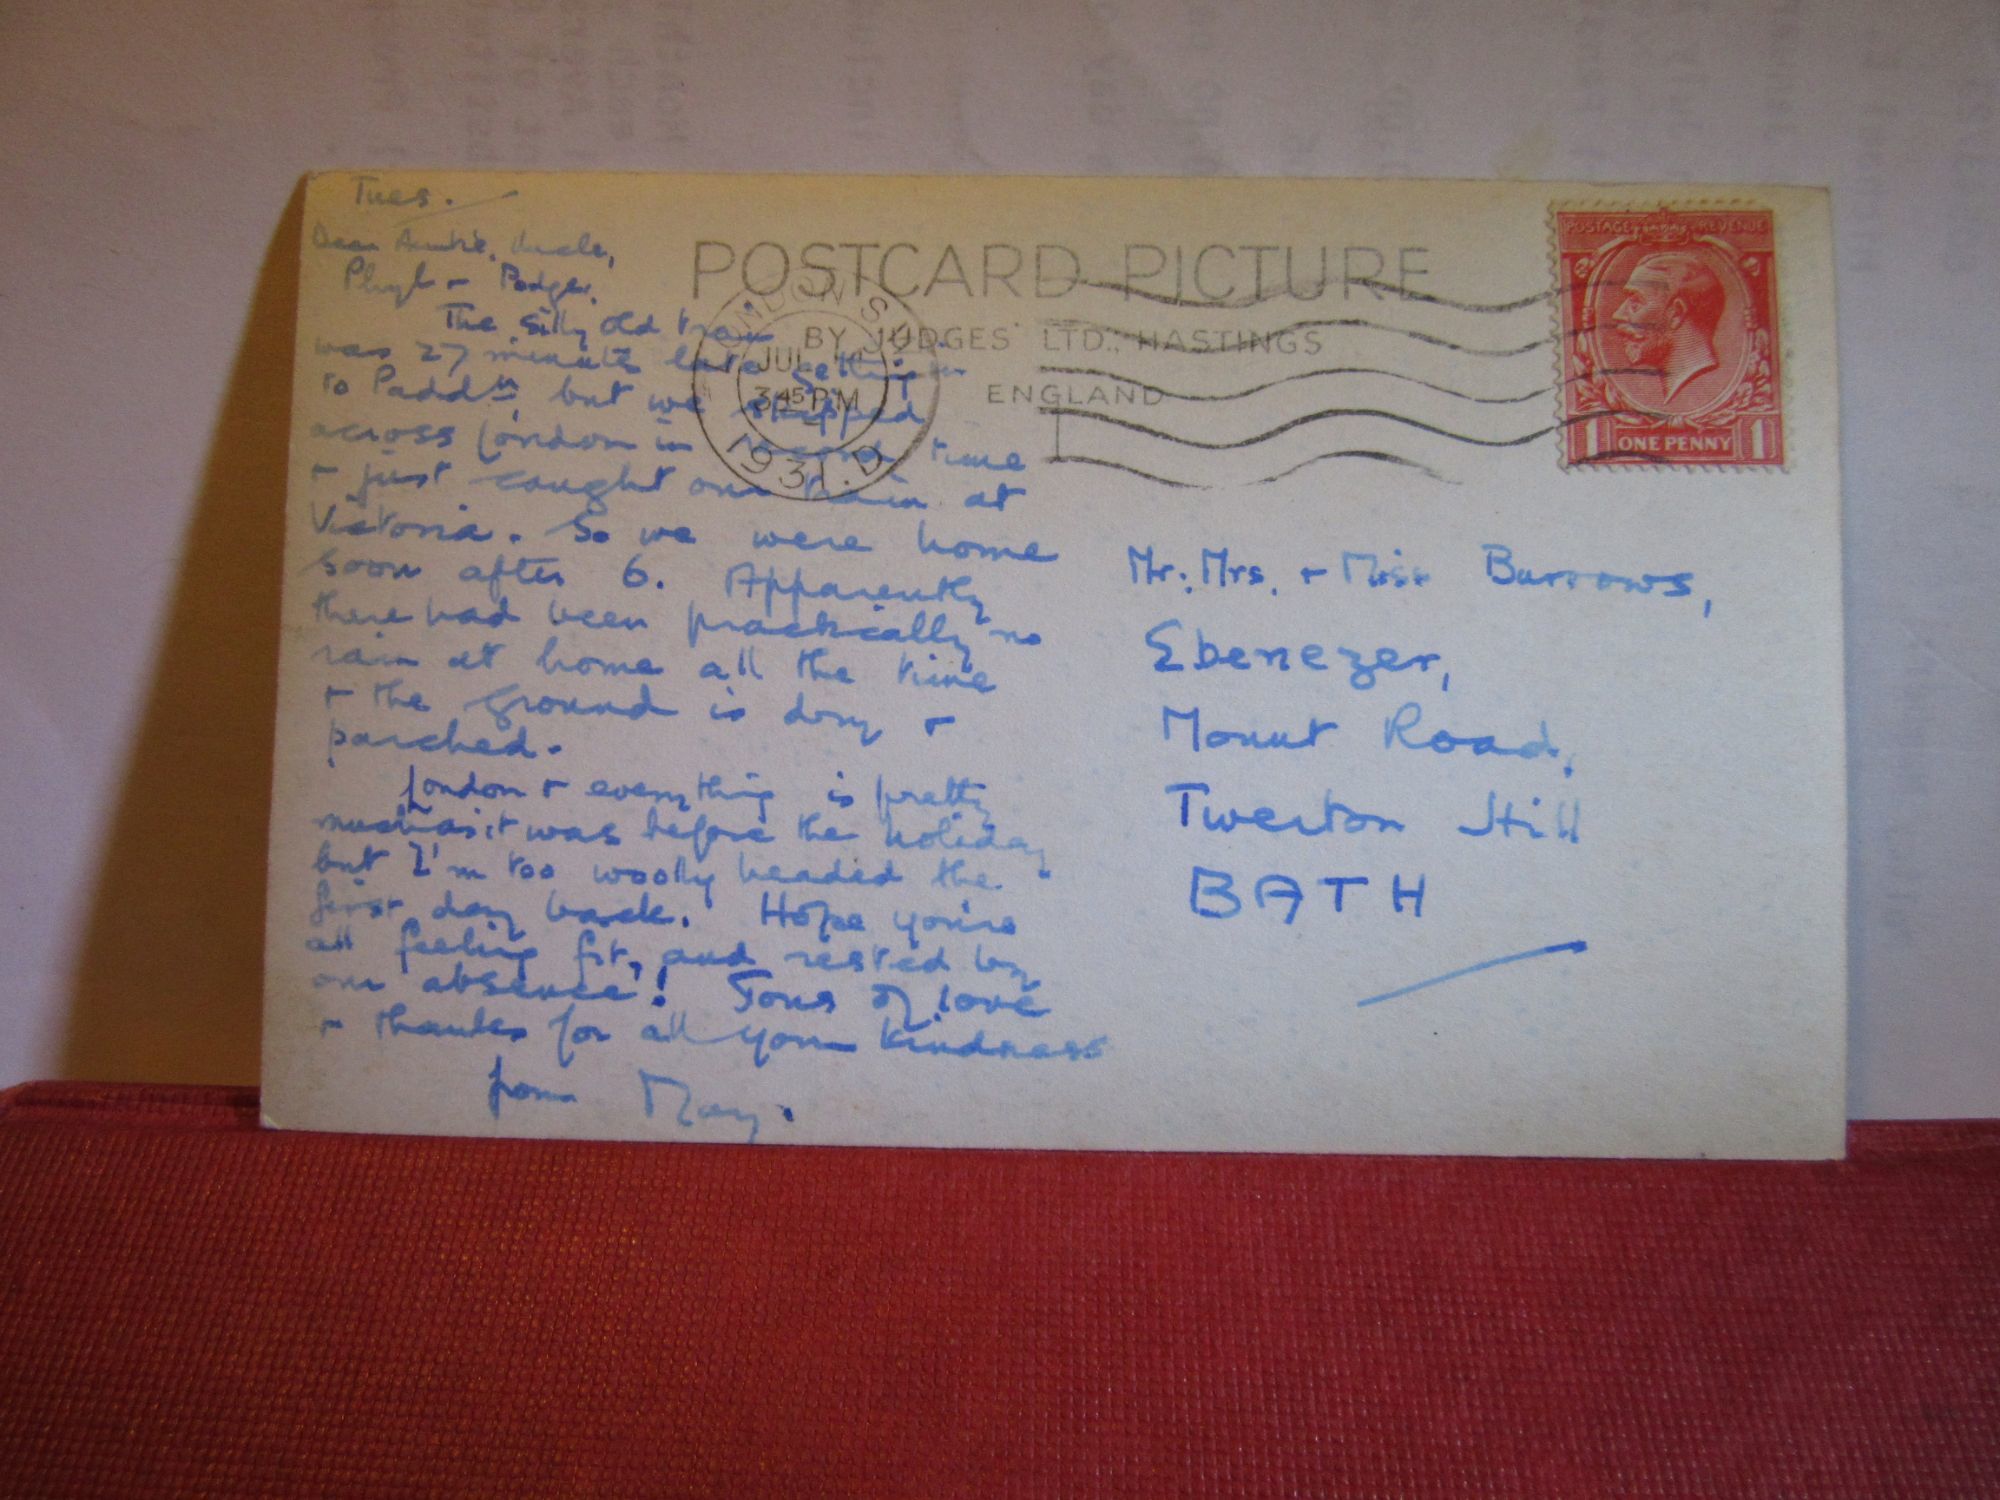 Tues.
Dear Auntie, Uncle,
Phyl + Podge,
The silly old train
was 27 minutes late getting in
to Padd<sup>n</sup>, but we skipped
across London in record time
+ just caught our train at
Victoria. So we were home
soon after 6. Apparently
there had been practically no
rain at home all the time
+ the ground is dry +
parched.
London + everything is pretty
much as it was before the holiday
but I'm too woolly headed the
first day back. Hope you're
all feeling fit, and rested by
our absence! Tons of love
+ thanks for all your kindness
from May.
POSTCARD PICTURE
BY JUDGES' LTD., HASTINGS
ENGLAND
LONDON S.W.
JUL
3 45 PM
1931. D
POSTAGE REVENUE
1 ONE PENNY 1
Mr. Mrs. + Miss Burrows,
Ebenezer,
Mount Road,
Twerton Hill
BATH